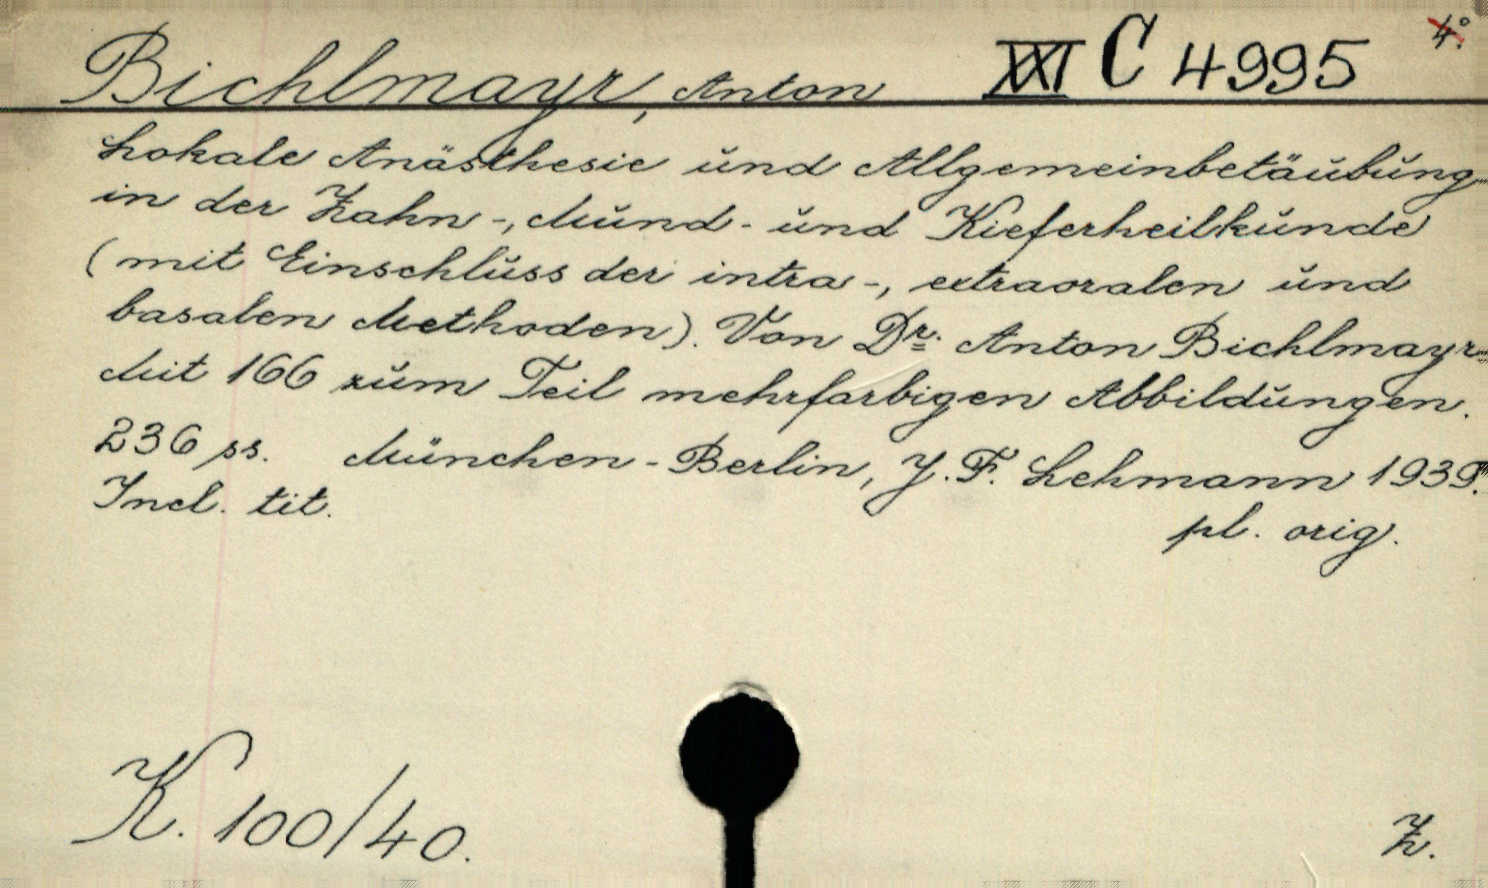 Bichlmayr, Anton XXI C 4995 4°
Lokale Anästhesie und Allgemeinbetäubung
in der Zahn-, Mund- und Kieferheilkunde
(mit Einschluss der intra-, extraoralen und
basalen Methoden). Von Dr. Anton Bichlmayr.
Mit 166 zum Teil mehrfarbigen Abbildungen.
236 ss. München-Berlin, J. F. Lehmann 1939.
Incl. tit.
pl. orig.
K. 100/40.
Z.